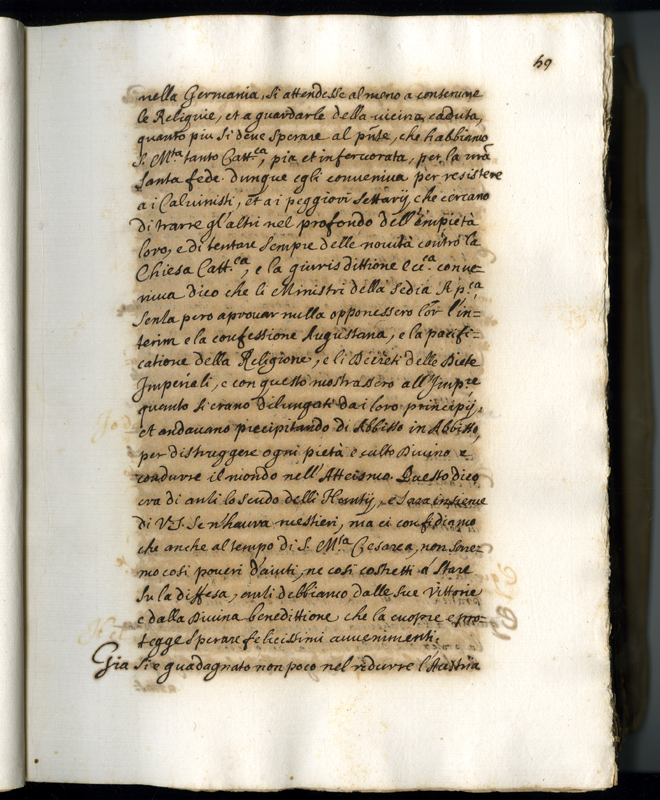 69
nella Germania, si attendesse almeno a contenerne
le Religuie, et a guardarle della uicina caduta,
quanto piu si deue sperare al pnṡe, che habbiamo
S. M.ta tanto Catt.ca, pia et inferuorata, per la nrã
santa fede dunque egli conueniua per resistere
a i Caluinisti, et a i peggiori settarij, che cercano
di trarre gl'altri nel profondo dell'empietà
loro, e di tentare sempre delle nouità contro la
Chiesa Catt.ca, e la giurisdittione Ecc.ca conue-
niua dico che li Ministri della sedia Ap.ca
senza pero aprouar nulla opponessero lor l'in-
terim e la confessione Augustana, e la pacifi-
catione della Religione, e li Decreti delle Diete
Imperiali, e con questo mostrassero all'Imp.re
quanto si erano dilungati dai loro principij,
et andauano precipitando di Abbisso in Abbisso,
per distruggere ogni pietà e culto Diuino e
condurre il mondo nell'Atteismo. Questo dico
era di anti lo scudo delli e sara insieme
di V.S. se n'haura mestieri, ma ci confidiamo
che anche al tempo di S. M.ta Cesarea, non sare-
mo così poueri d'aiuti, ne così costretti a stare
su la diffesa, anzi debbiamo dalle sue Vittorie
e dalla Diuina benedittione che la cuopre e pro-
tegge sperare felicissimi auuenimenti.
Gia si e guadagnato non poco nel ridurre l'Austria